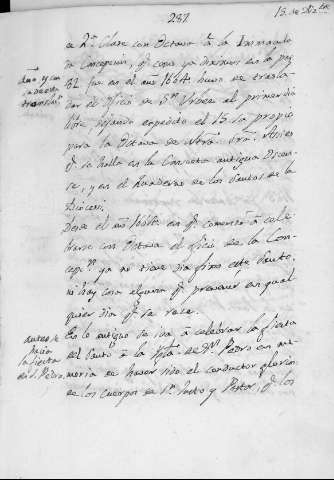 287
13 de Nbre
de 2ª Clase con Octava á la Inmacula
da Concepcion, qe como ya diximos en la pag.
82 fue en el año 1664. huvo de trasla-
dar el Oficio de Sn Urbez al primer dia
libre, dejando expedito el 15 su propio
para la Octava de Ntra Sra. Assi es
qe se halla en la Consueta antigua Oscen-
se, y en el Quaderno de los Santos de la
Diocesi.
Desde el año 1664 en qe comenzó á cele
brarse con Octava el oficio de la Con-
cepcn ya no tiene dia fixo este Santo,
ni hay cosa alguna qe prevenir en qual
quier dia qe se reze.
antes se
hacia
la fiesta
en S. Pedro.
En lo antiguo se iva á celebrar la fiesta
del Santo á la Iglª de Sn Pedro en me
moria de haver sido el conductor glorioso
de los Cuerpos de Sn Justo y Pastor, qe los